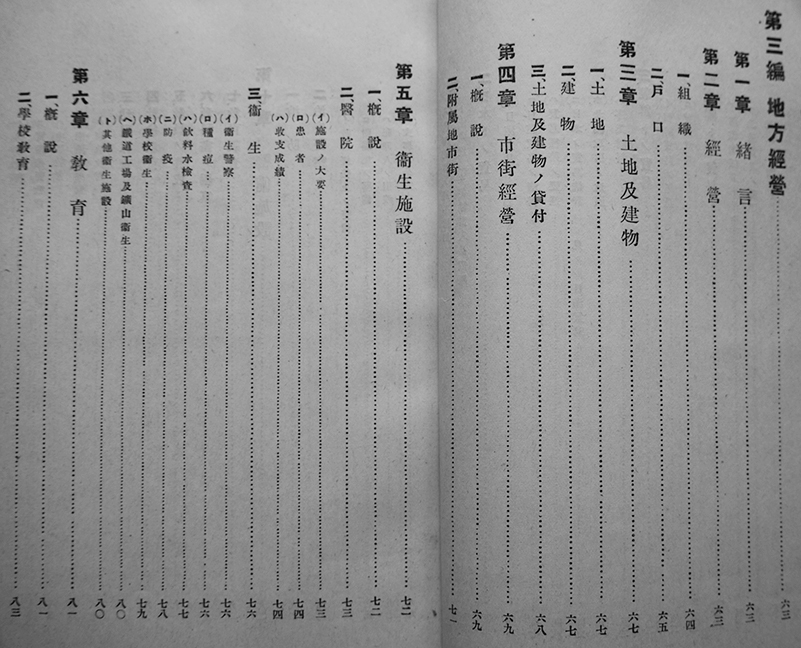 第三編 地方經營……六三
第一章 緒言……六三
第二章 經營……六三
一、組織……六四
二、戸口……六五
第三章 土地及建物……六七
一、土地……六七
二、建物……六七
三、土地及建物ノ貸付……六八
第四章 市街經營……六九
一、概説……六九
二、附屬地市街……七一
第五章 衞生施設……七二
一、概説……七二
二、醫院……七三
(イ)施設ノ大要……七三
(ロ)患者……七四
(ハ)收支成績……七四
三、衞生……七六
(イ)衞生警察……七六
(ロ)種痘……七六
(ハ)飮料水檢査……七七
(ニ)防疫……七八
(ホ)學校衞生……七九
(ヘ)鐵道工場及鑛山衞生……八〇
(ト)其他衞生施設……八〇
第六章 敎育……八一
一、概説……八一
二、學校敎育……八三